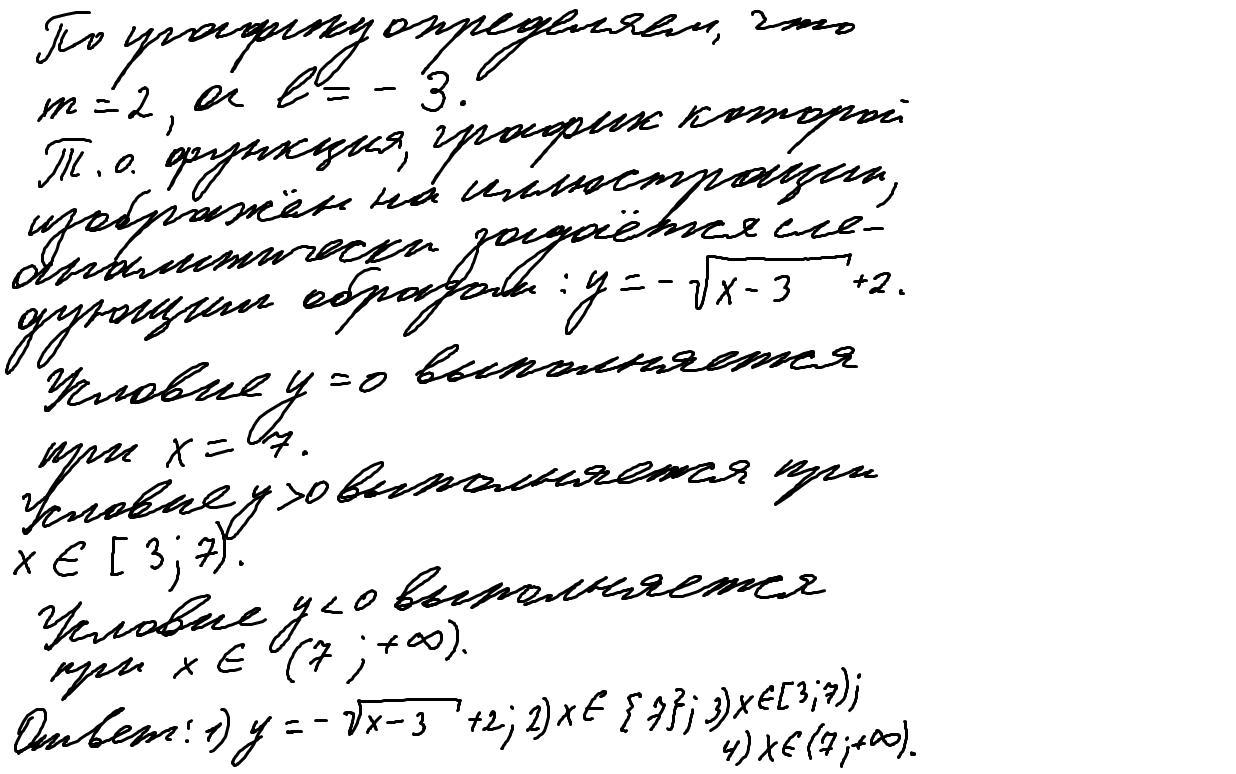 По графику определяем, что
m = 2, а l = - 3.
Т. о. функция, график которой
изображён на иллюстрации,
аналитически задаётся сле-
дующим образом: y = - √(x - 3) + 2.
Условие y = 0 выполняется
при x = 7.
Условие y > 0 выполняется при
x ∈ [3; 7).
Условие y < 0 выполняется
при x ∈ (7; +∞).
Ответ: 1) y = - √(x - 3) + 2; 2) x ∈ {7}; 3) x ∈ [3; 7);
4) x ∈ (7; +∞).